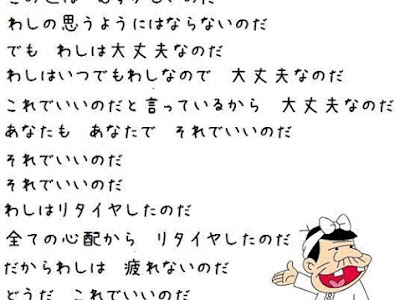 わしの思うようにはならないのだ
でも わしは大丈夫なのだ
わしはいつでもわしなので 大丈夫なのだ
これでいいのだと言っているから 大丈夫なのだ
あなたも あなたで それでいいのだ
それでいいのだ
それでいいのだ
わしはリタイヤしたのだ
全ての心配から リタイヤしたのだ
だからわしは 疲れないのだ
どうだ これでいいのだ